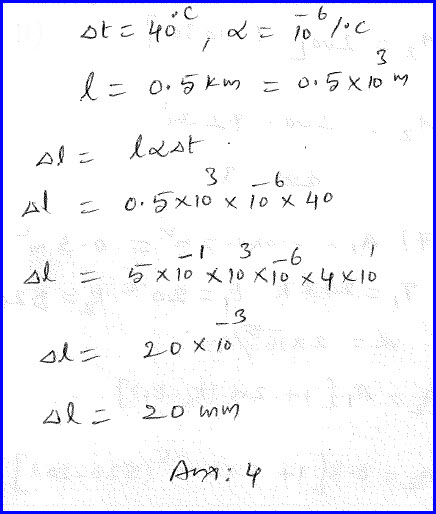 Δt = 40°C, α = 10⁻⁶/°C
l = 0.5 km = 0.5×10³ m
Δl = lαΔt.
Δl = 0.5×10³ × 10⁻⁶ × 40
Δl = 5×10⁻¹×10³×10⁻⁶×4×10¹
Δl = 20×10⁻³
Δl = 20 mm
Ans: 4